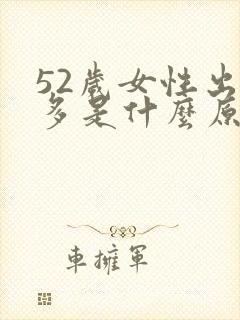 52歲女性出
多是什麼原
車擁軍